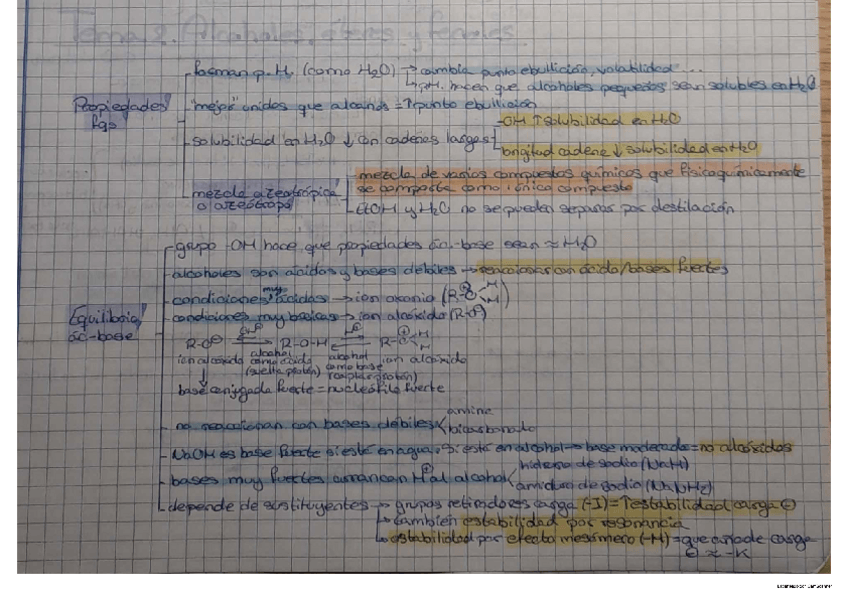 Tema 2. Alcoholes, éteres y fenoles.
forman p.H. (como H₂O) → cambia punto ebullición, volatilidad...
↳ p.H. hacen que alcoholes pequeños sean solubles en H₂O
Propiedades
fqs
"mejor" unidos que alcanos = ↑ punto ebullición
-OH ↑ solubilidad en H₂O
solubilidad en H₂O ↓ con cadenas largas
longitud cadena ↓ solubilidad en H₂O
mezcla azeotrópica
o azeótropo
mezcla de varios compuestos químicos que fisicoquímicamente
se comporta como único compuesto
EtOH y H₂O no se pueden separar por destilación
grupo -OH hace que propiedades ác.-base sean ≈ H₂O
alcoholes son ácidos y bases débiles → reaccionan con ácido/bases fuertes
Equilibrio
ác-base
condiciones muy ácidas → ion oxonio (R-O⊕ H H)
condiciones muy básicas → ion alcóxido (R-O⊖)
R-O⊖ ⇌ R-O-H ⇌ H⊕ R-O⊕ H H
ion alcóxido alcohol como ácido (suelta protón) alcohol como base (capta protón) ion alcóxido
↓
base conjugada fuerte = nucleófilo fuerte
no reaccionan con bases débiles < amina
bicarbonato
NaOH es base fuerte si está en agua, si está en alcohol → base moderada = no alcóxidos
bases muy fuertes arrancan H⊕ al alcohol < hidruro de sodio (NaH)
amiduro de sodio (NaNH₂)
depende de sustituyentes → grupos retiradores carga (-I) = ↑ estabilidad carga ⊖
↳ también estabilidad por resonancia
↳ estabilidad por efecto mesómero (-M) = que añade carga
⊖ ≈ -K